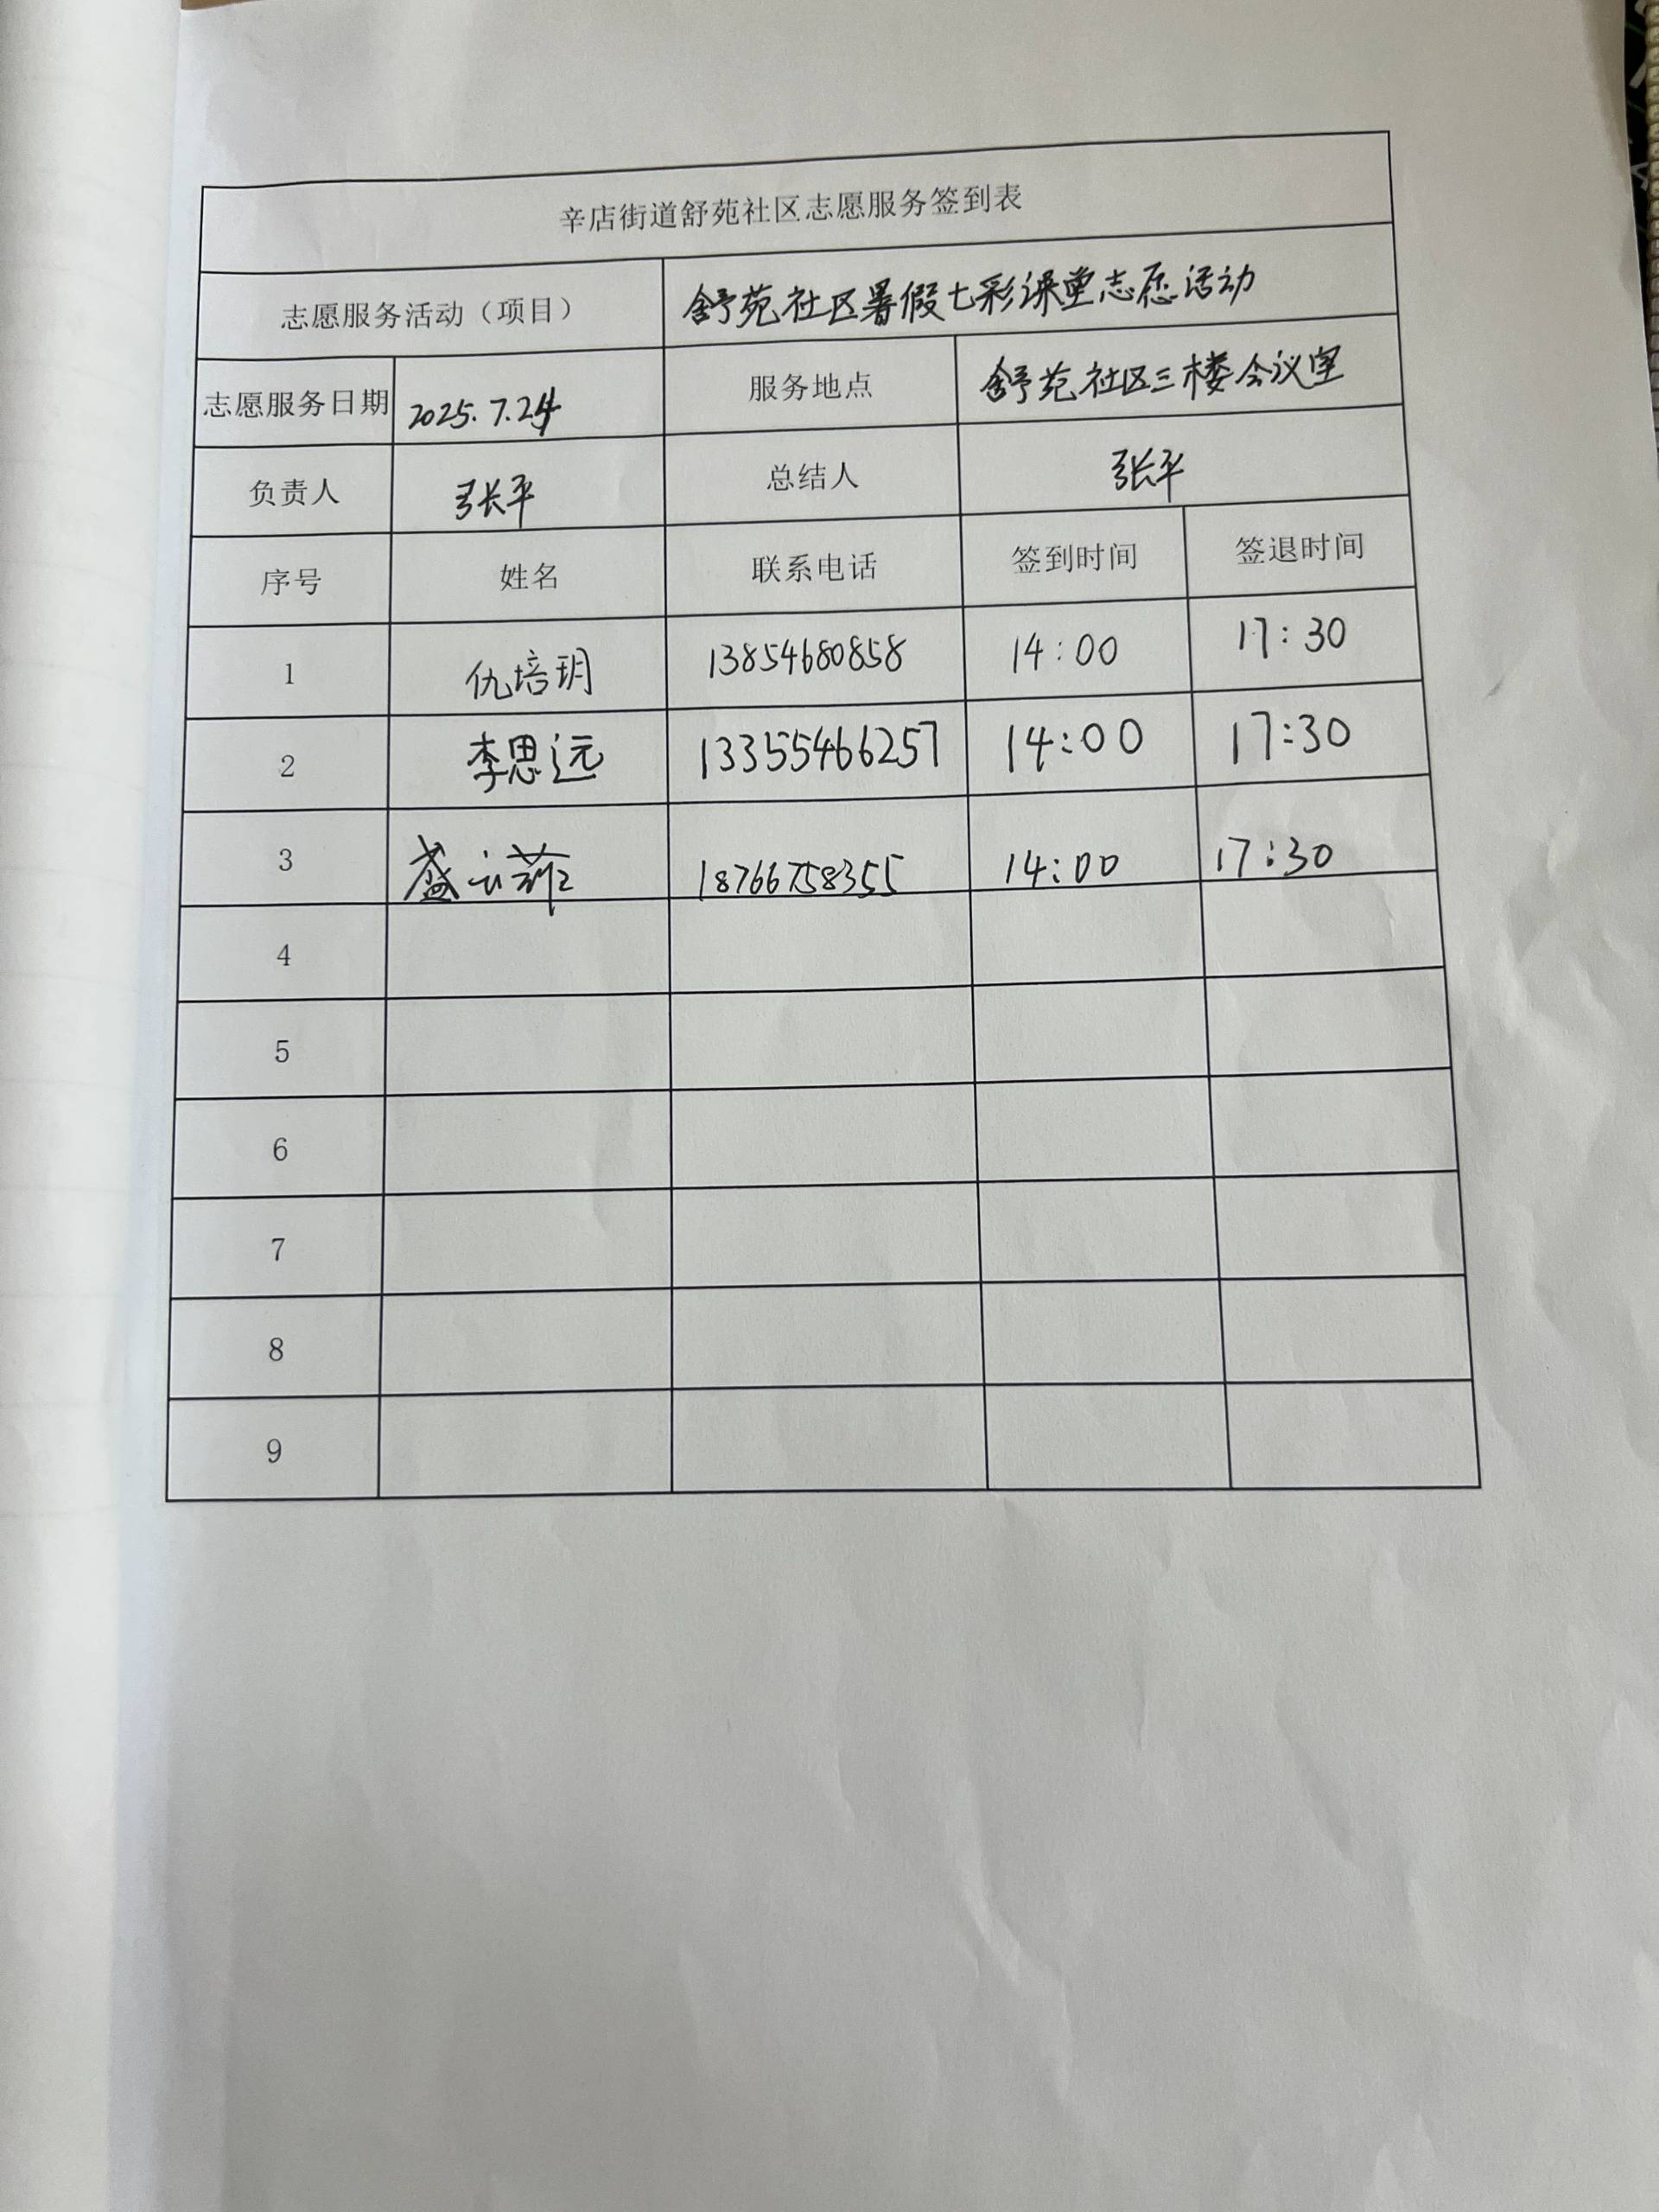 辛店街道舒苑社区志愿服务签到表
志愿服务活动（项目） 舒苑社区暑假七彩课堂志愿活动
志愿服务日期 2025.7.24 服务地点 舒苑社区三楼会议室
负责人 张平 总结人 张平
序号 姓名 联系电话 签到时间 签退时间
1 仇培玥 13854680858 14:00 17:30
2 李思远 13355466257 14:00 17:30
3 盛云菲 18766758355 14:00 17:30
4
5
6
7
8
9